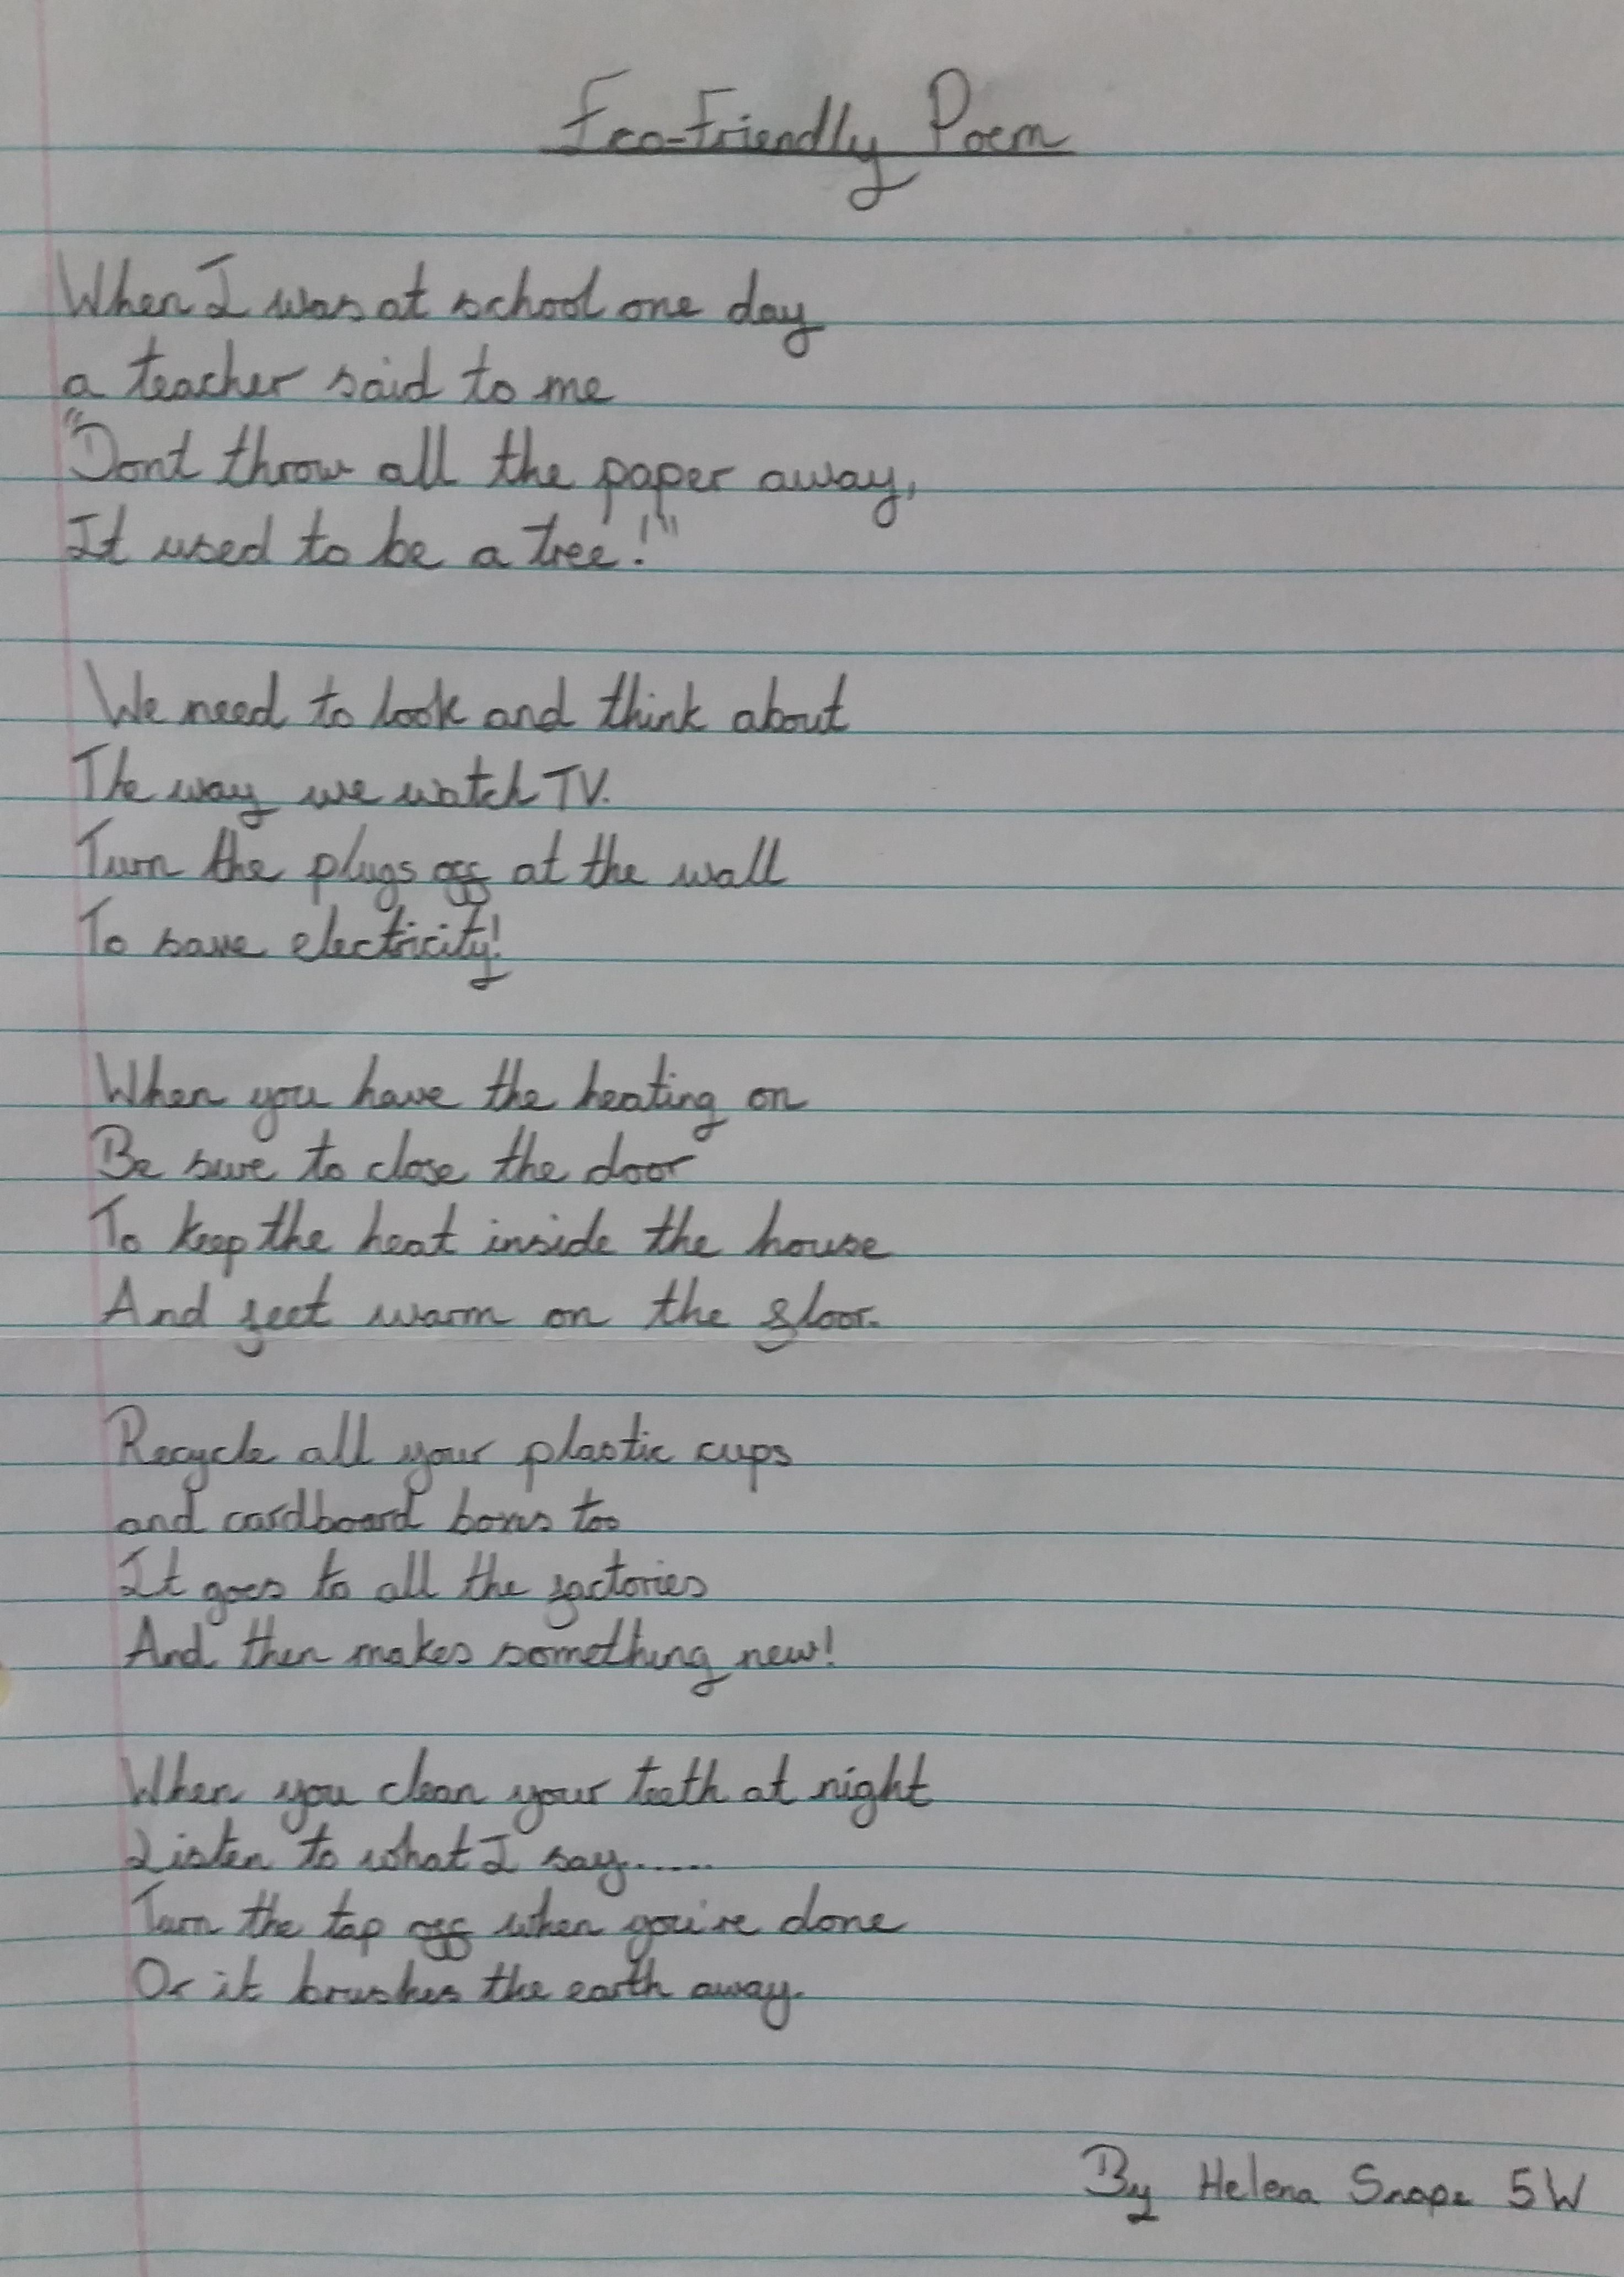 Eco-Friendly Poem
When I was at school one day
a teacher said to me
"Dont throw all the paper away,
It used to be a tree!"
We need to look and think about
The way we watch TV.
Turn the plugs off at the wall
To save electricity!
When you have the heating on
Be sure to close the door
To keep the heat inside the house
And feet warm on the floor.
Recycle all your plastic cups
and cardboard boxes too
It goes to all the factories
And then makes something new!
When you clean your teeth at night
Listen to what I say......
Turn the tap off when you're done
Or it brushes the earth away.
By Helena Snape 5W